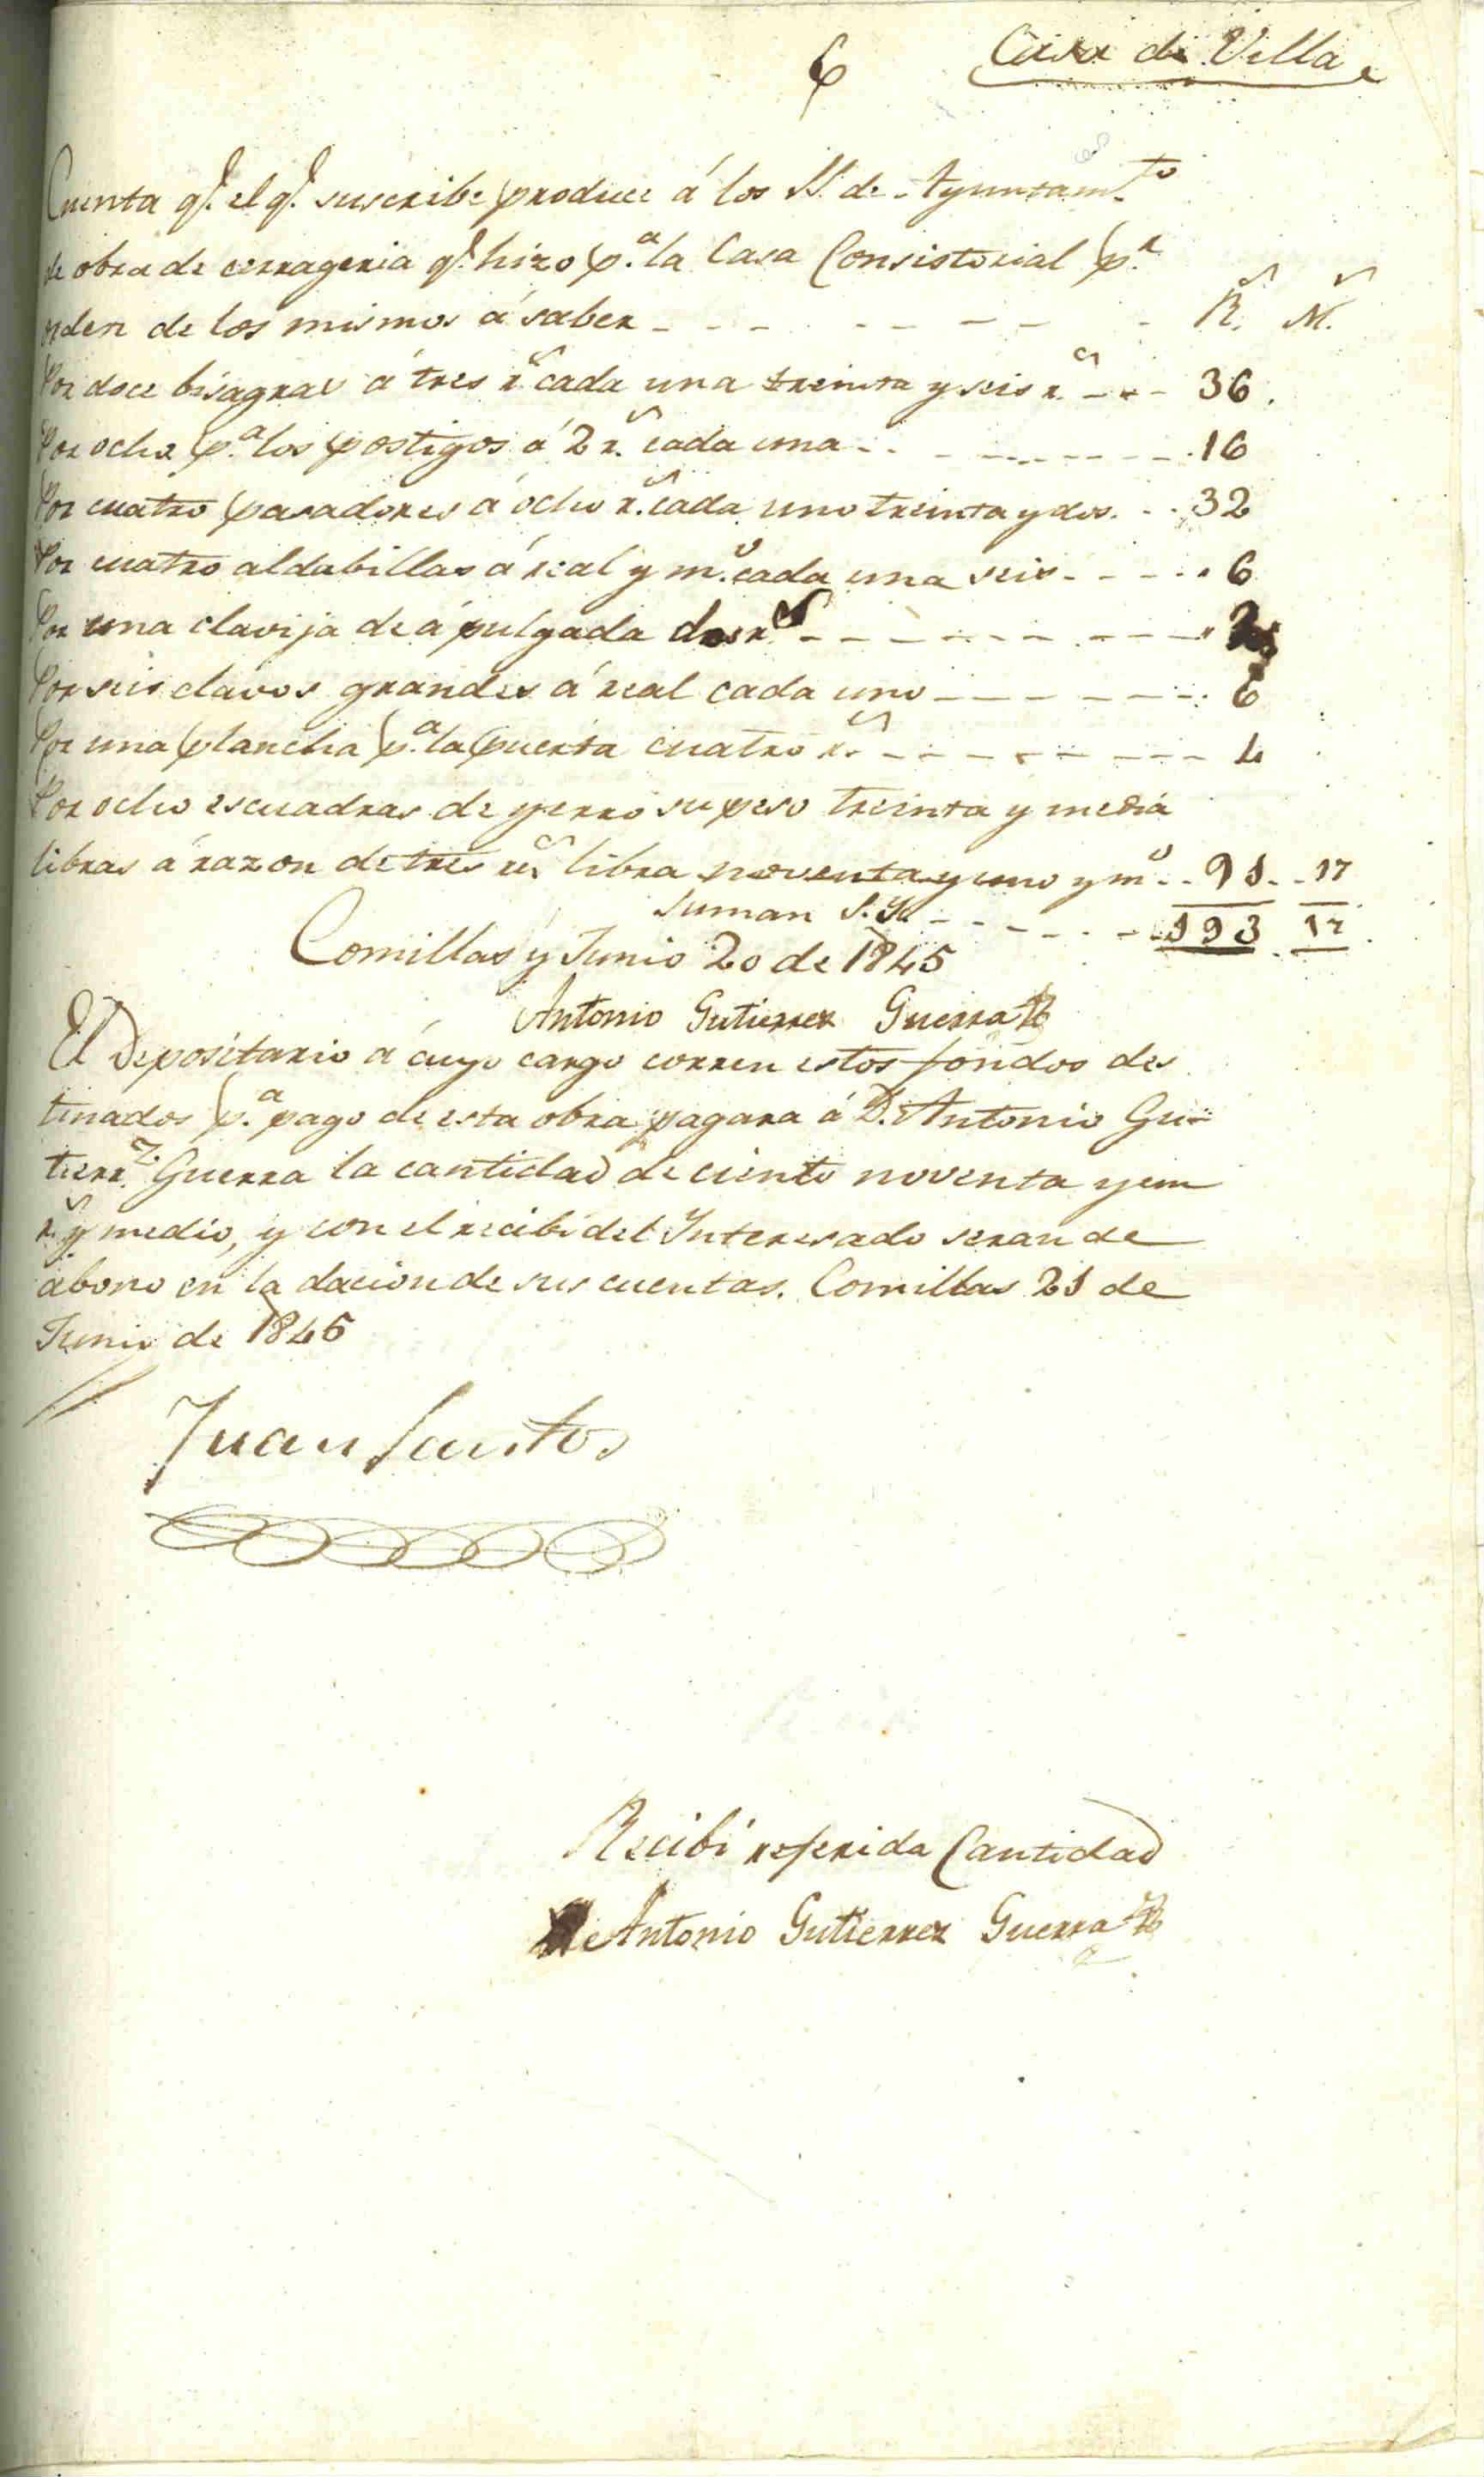 6 Casa de Villa
Cuenta q.e el q.e suscribe produce á los SS. de Ayuntam.to
de obra de cerrageria q.e hizo p.a la Casa Consistorial p.r
orden de los mismos á saber - - - - - - - - R.s M.s
Por doce bisagras á tres r.s cada una treinta y seis r.s - - - 36.
Por ocho p.a los postigos á 2 r.s cada una - - - - - - - 16
Por cuatro pasadores á ocho r.s cada uno treinta y dos. - - 32
Por cuatro aldabillas á real y m.o cada una seis - - - - - 6
Por una clavija de á pulgada dos r.s - - - - - - - - 2
Por seis clavos grandes á real cada uno - - - - - - - 6
Por una plancha p.a la puerta cuatro r.s - - - - - - - - 4
Por ocho escuadras de yerro su peso treinta y media
libras á razon de tres r.s libra noventa y uno y m.o - - 91 - - 17
Suman S. Y. - - - - - - 193 17
Comillas y Junio 20 de 1845
Antonio Gutierrez Guerra
El Depositario á cuyo cargo corren estos fondos des
tinados p.a pago de esta obra pagara á D. Antonio Gu-
tierr.z Guerra la cantidad de ciento noventa y un
r.s y medio, y con el recibi del Interesado seran de
abono en la dacion de sus cuentas. Comillas 21 de
Junio de 1845
Juan Santos
Recibí referida Cantidad
Antonio Gutierrez Guerra